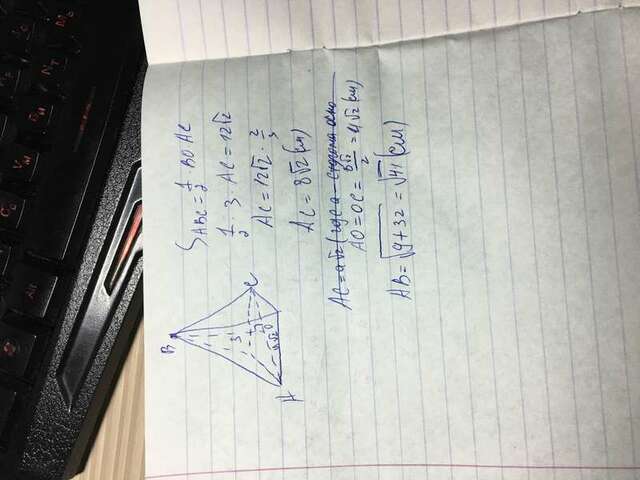 B
3
C
O
4√2
A
S ABC = 1/2 · BO · AC
1/2 · 3 · AC = 12√2
AC = 12√2 · 2/3
AC = 8√2 (см)
AC = a√2 (где a - сторона осно
AO = OC = 8√2/2 = 4√2 (см)
AB = √9+32 = √41 (см)